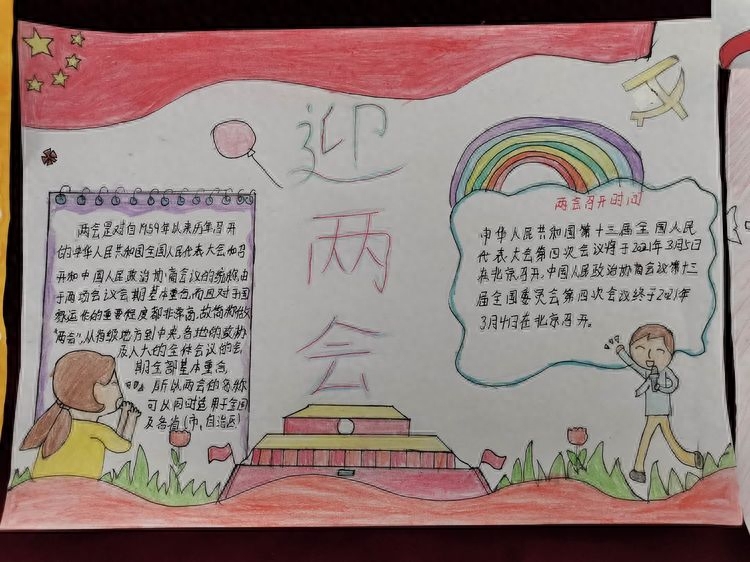 迎
两
会
两会是对自1959年以来历年召开
的中华人民共和国全国人民代表大会和召
开和中国人民政治协商会议的统称。由
于两场会议会期基本重合,而且对于国
家运作的重要程度都非常高,故简称做
"两会"。从省级地方到中央,各地的政协
及人大的全体会议的会
期全部基本重合,
所以两会的名称
可以同时适用于全国
及各省(市、自治区)
两会召开时间
中华人民共和国第十三届全国人民
代表大会第四次会议将于2021年3月5日
在北京召开。中国人民政治协商会议第十三
届全国委员会第四次会议终于2021年
3月4日在北京召开。